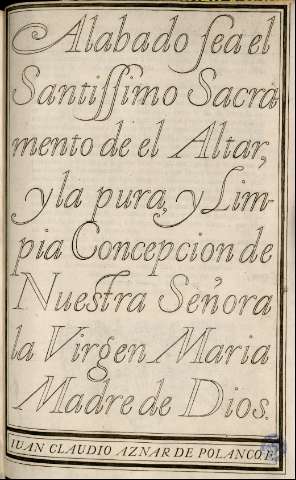 Alabado ſea el
Santiſſimo Sacra-
mento de el Altar,
y la pura, y Lim-
pia Concepcion de
Nueſtra Señora
la Virgen Maria
Madre de Dios.
IUAN CLAUDIO AZNAR DE POLANCO F.